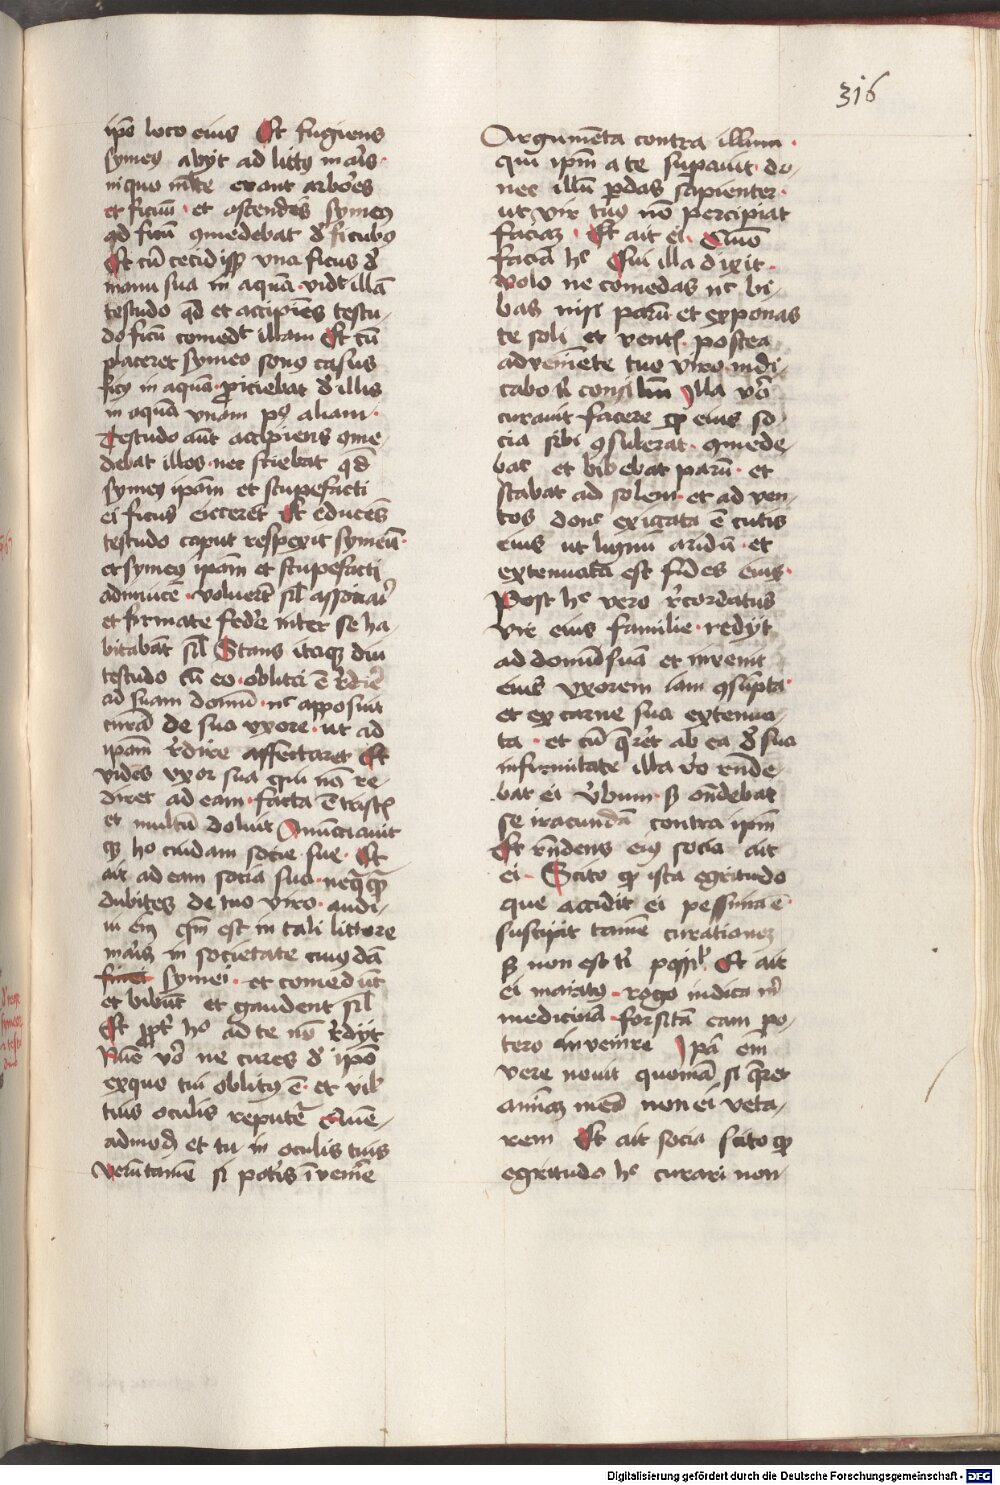 316
ip̄o loco eius Et fugiens
symeꝯ abyt ad littꝯ mar̄s ·
in quo m̄lte erant arbor̄es
et ficuū · et ascendēs symeꝯ
qd̄ ficū ꝯmedebat d̄ ficubꝯ
Et cū cecidissꝫ vna ficus d̄
manu sua in aquā · vidꝫ illā
testudo qd̄ et accipiēs testu-
do ficū comedꝫ illam Et cū
placeret symeo sonꝯ casus
ficꝯ in aquā · ꝓiciebat d̄ illis
in aquā vnam pꝯ aliam ·
Testudo aūt accipiens ꝯme-
debat illos · nec sciebat qd̄
symeꝯ ipām et stupefacti
ei ficus eiceret Et educēs
testudo caput respexit symeū ·
et symeꝯ ipām et stupefacti
adinuicē · voluerūt sil̄ associari
et firmate feder̄e inter se ha-
bitabāt sil̄ Stans itaqꝫ diu
testudo cū eo · oblita ē r̄dir̄e
ad suam domū · nꝫ apposuit
curā de sua vxore · ut ad
ipam r̄dire affectaret Et
videns vxor sua qui nō re-
diret ad eam · facta ē tristꝭ
et multū doluit Anūciauit
qꝫ hº cuidam socie sue · Et
ait ad eam socia sua · neqꝙꝫ
dubites de tuo viro · audi-
ui em̄ qm̄ est in tali littore
mar̄s in societate cuiꝯdā
symei · et comedūt
et bibūt et gaudent sil̄
Et ꝓpt̄ hº ad te nō r̄dyt
Nūc vō ne cures d̄ ipō
exquo tui oblitꝯ ē · et vilꝭ
tuis oculis reputet̄ Quē-
admodꝫ et tu in oculis tuis
Verūtamē si potis īvenir̄e
Argumēta contra illum ·
qui ipm̄ a te sepauit · do-
nec illū ꝑdas sapienter ·
ut vir tuꝯ nō percipiat
faciaꝫ · Et ait ei · Quō
faciā hꝫ Cui illa dixit ·
Volo ne comedas nꝫ bi-
bas nisi parū et exponas
te soli et ventꝭ · postea
adveniēte tuo viro indi-
cabo t̄ consilium Illa vō
curauit facere ꝙ eius so-
cia sibi ꝯsulerat · ꝯmede-
bat et bibebat parū · et
stabat ad solem · et ad ven-
tos donꝫ exicata ē cutis
eius ut lignū aridū · et
extenuata est facies eius ·
Post hꝫ vero r̄cordatus
vir eius familie · redyt
ad domū suā et invenit
eius vxorem iam ꝯsūpta
et ex carne sua extenua-
ta · et cū q̄ret ab ea d̄ sua
infirmitate illa vō rn̄de-
bat ei v̄bum · sꝫ on̄debat
se iracundā contra ipm̄
Et rn̄dens eiꝯ socia ait
ei · Scito ꝙ ista egritudo
que accidit ei pessima ē
suscipit tamē curationeꝫ
sꝫ non est t̄ possib̄l · Et ait
ei maritꝯ · rogo indica m̄
medicinā · forsitā eam po-
tero invenire Ipā em̄
vere nouit quoniā si q̄ret
animaꝫ meā non ei veta-
rem Et ait socia scito ꝙ
egritudo hꝫ curari non
Digitalisierung gefördert durch die Deutsche Forschungsgemeinschaft - DFG